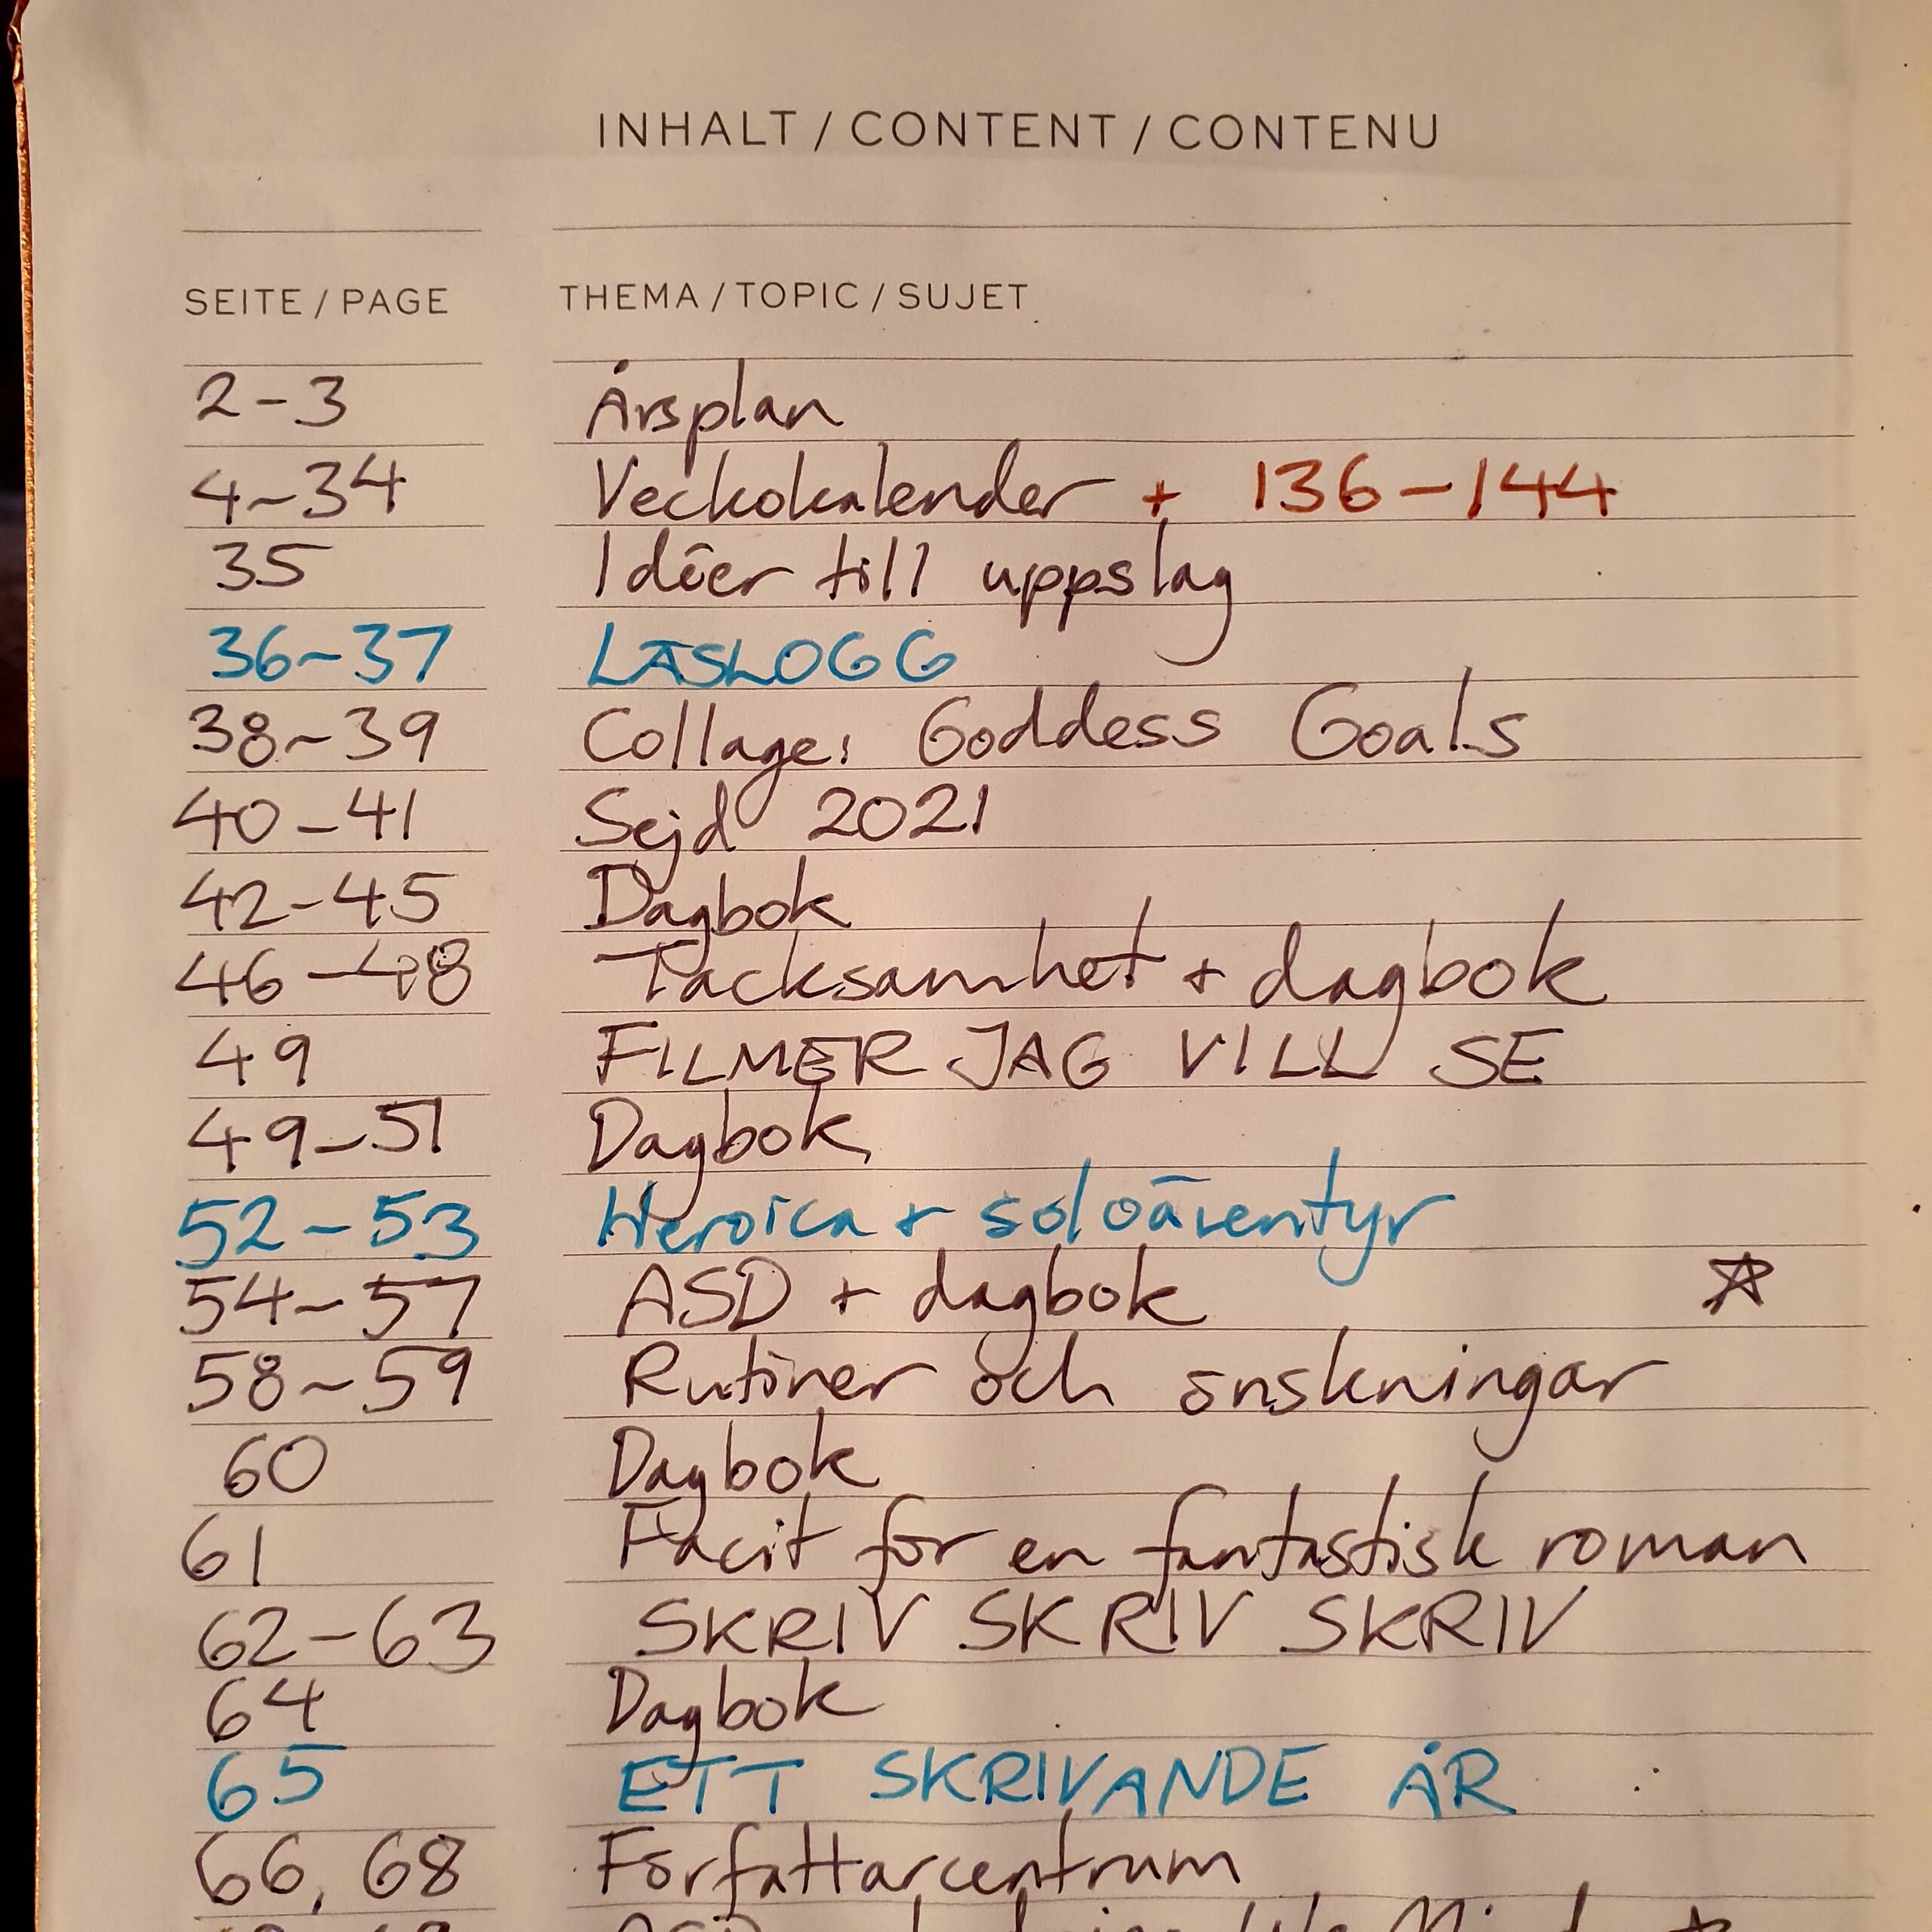 INHALT / CONTENT / CONTENU
SEITE / PAGE THEMA / TOPIC / SUJET
2-3 Årsplan
4-34 Veckokalender + 136-144
35 Idéer till uppslag
36-37 LÄSLOGG
38-39 Collage: Goddess Goals
40-41 Sejd 2021
42-45 Dagbok
46-48 Tacksamhet + dagbok
49 FILMER JAG VILL SE
49-51 Dagbok
52-53 Heroica + soloäventyr
54-57 ASD + dagbok ☆
58-59 Rutiner och önskningar
60 Dagbok
61 Facit för en fantastisk roman
62-63 SKRIV SKRIV SKRIV
64 Dagbok
65 ETT SKRIVANDE ÅR
66, 68 Författarcentrum
ASD